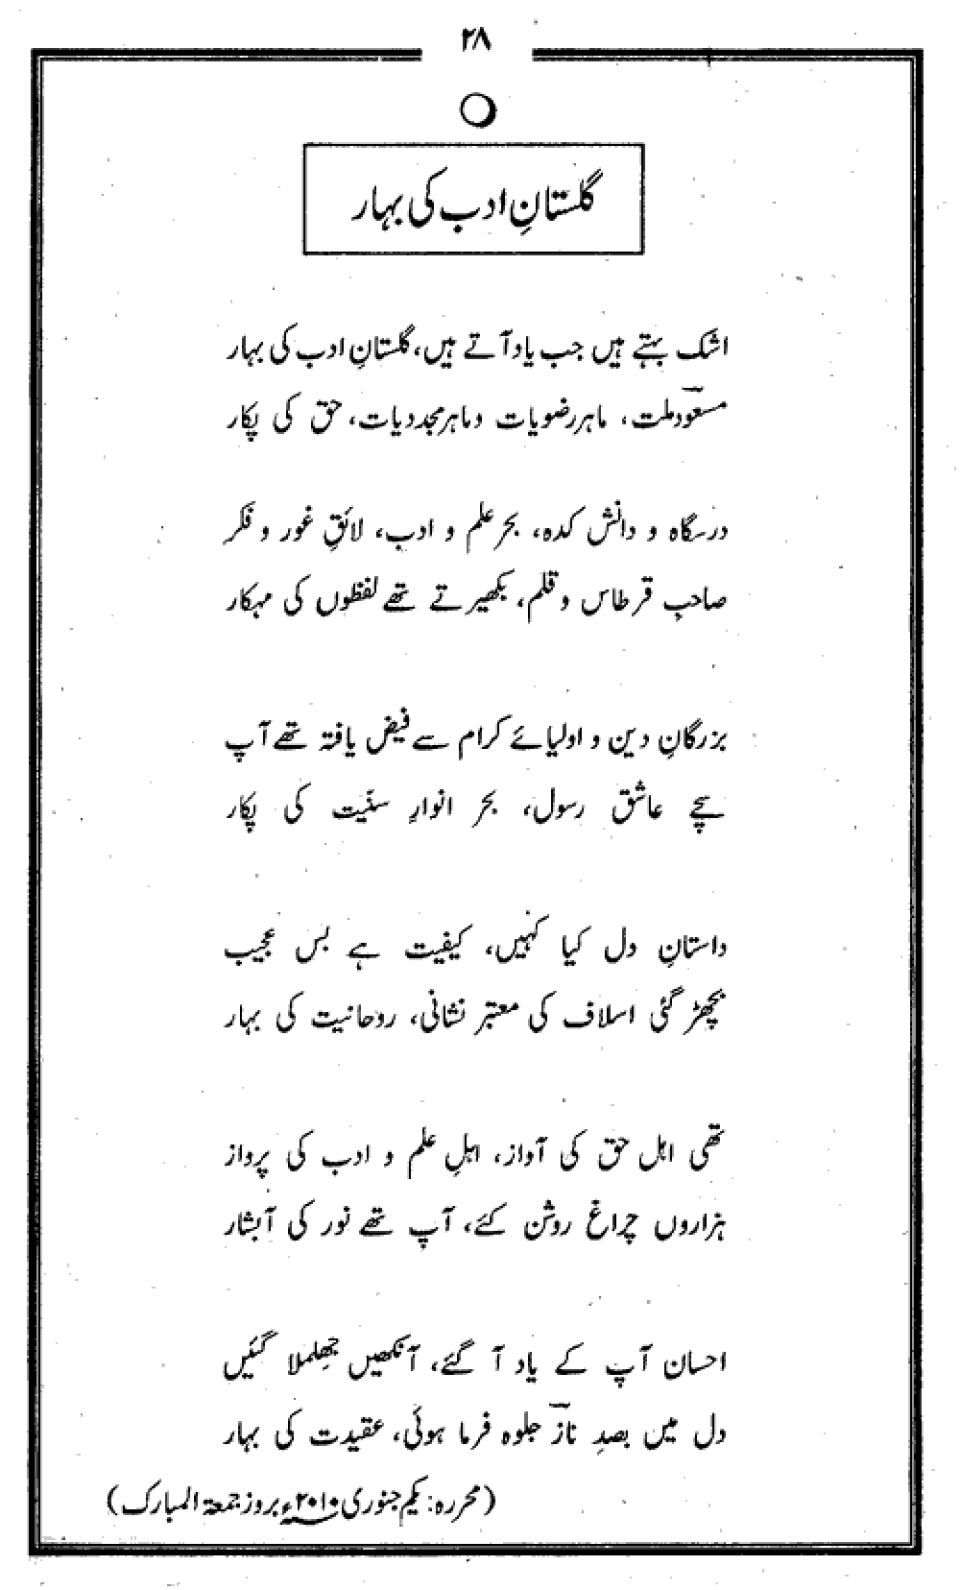 ۲۸
گلستانِ ادب کی بہار
اشک بہتے ہیں جب یاد آتے ہیں، گلستانِ ادب کی بہار
مسعودؔ ملت، ماہر رضویات و ماہر مجددیات، حق کی پکار
درسگاہ و دانش کدہ، بحر علم و ادب، لائقِ غور و فکر
صاحبِ قرطاس و قلم، بکھیرتے تھے لفظوں کی مہکار
بزرگانِ دین و اولیائے کرام سے فیض یافتہ تھے آپ
سچے عاشق رسول، بحر انوارِ سنّیت کی پکار
داستانِ دل کیا کہیں، کیفیت ہے بس عجیب
بچھڑ گئی اسلاف کی معتبر نشانی، روحانیت کی بہار
تھی اہل حق کی آواز، اہلِ علم و ادب کی پرواز
ہزاروں چراغ روشن کئے، آپ تھے نور کی آبشار
احسان آپ کے یاد آ گئے، آنکھیں جھلملا گئیں
دل میں بصدِ نازؔ جلوہ فرما ہوئی، عقیدت کی بہار
(محررہ: یکم جنوری ۲۰۱۰ء بروز جمعۃ المبارک)